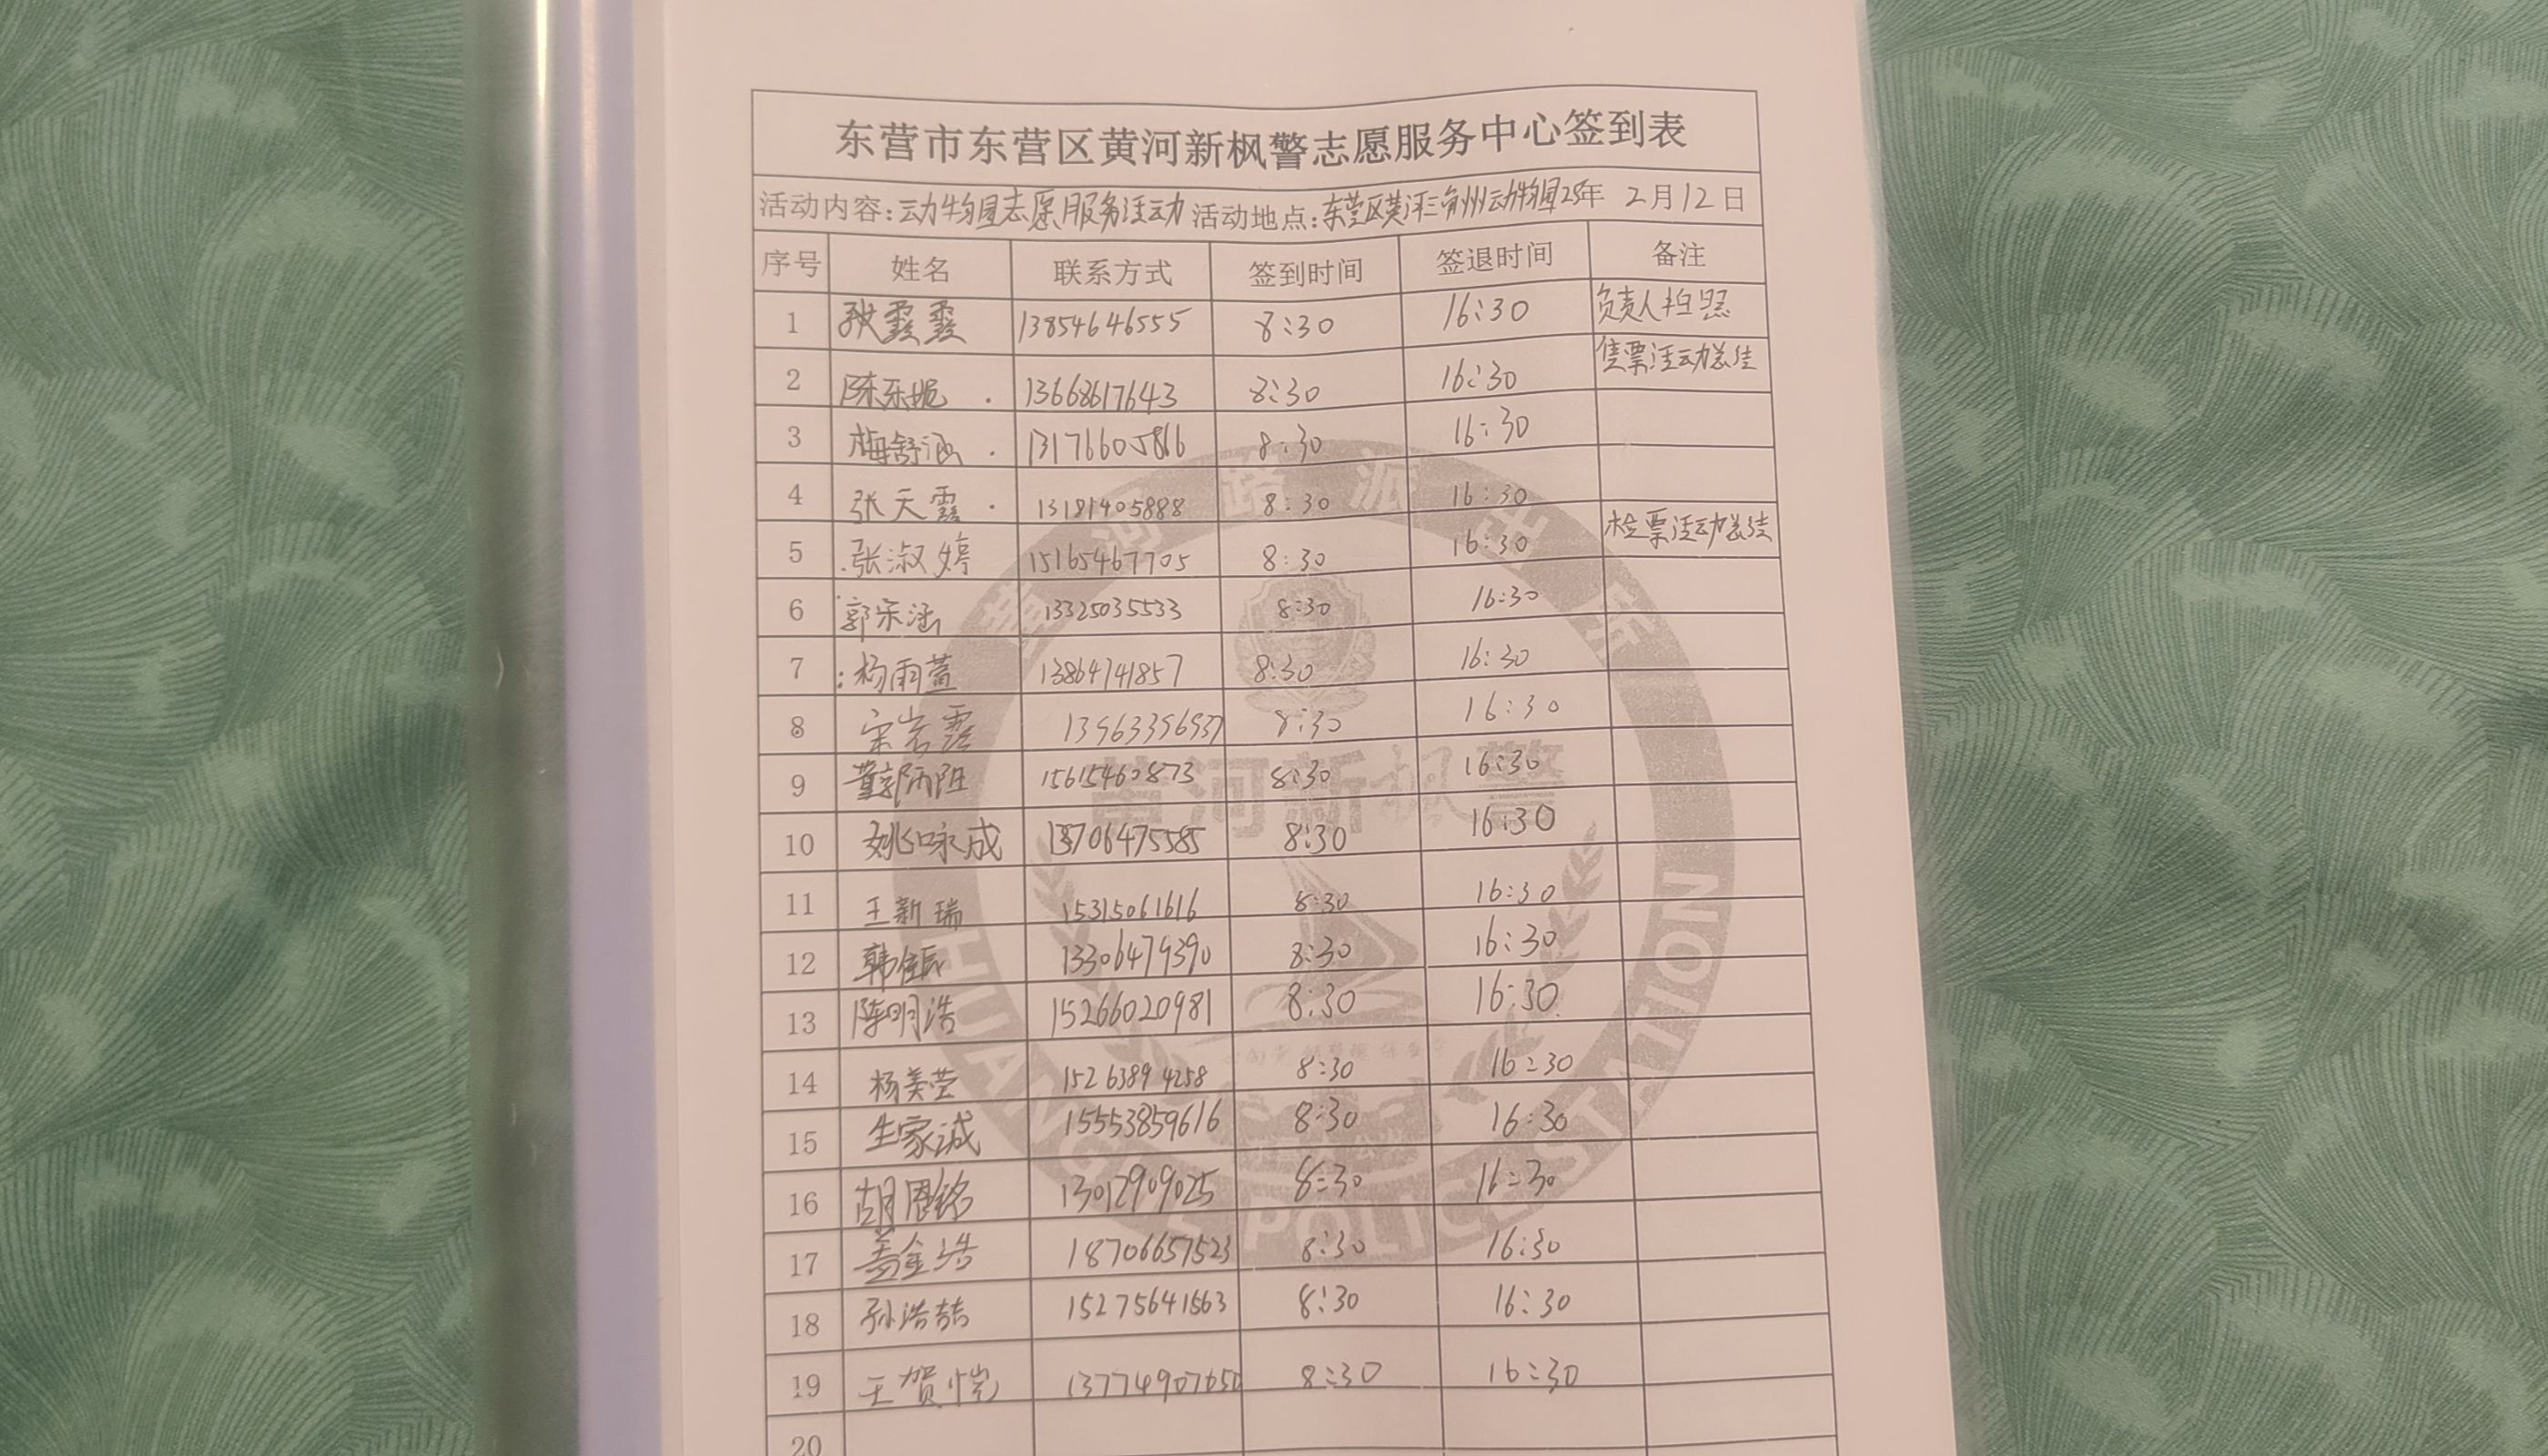 东营市东营区黄河新枫警志愿服务中心签到表
活动内容:动物园志愿服务活动 活动地点:东营区黄河三角州动物园25年 2月12日
序号 姓名 联系方式 签到时间 签退时间 备注
1 张霞霞 13854646555 8:30 16:30 负责人拍照
2 陈乐妮 13668617643 8:30 16:30 售票活动总结
3 梅舒涵 13176605866 8:30 16:30
4 张天霞 13181405888 8:30 16:30
5 张淑婷 15165467705 8:30 16:30 检票活动总结
6 郭宗涵 13325035533 8:30 16:30
7 杨雨萱 13864741857 8:30 16:30
8 宋岩霏 8:30 16:30
9 15615460873 8:30 16:30
10 姚咏成 13706475585 8:30 16:30
11 王新瑞 15315061616 8:30 16:30
12 韩佳辰 13306479390 8:30 16:30
13 陈明浩 15266020981 8:30 16:30
14 杨美莹 15263894258 8:30 16:30
15 生家诚 15553859616 8:30 16:30
16 胡恩铭 13012909025 8:30 16:30
17 盖金浩 18706657523 8:30 16:30
18 孙浩喆 15275641563 8:30 16:30
19 王贺恺 13774907650 8:30 16:30
20
黄河路派出所
黄河新枫警
HUANGHE POLICE STATION